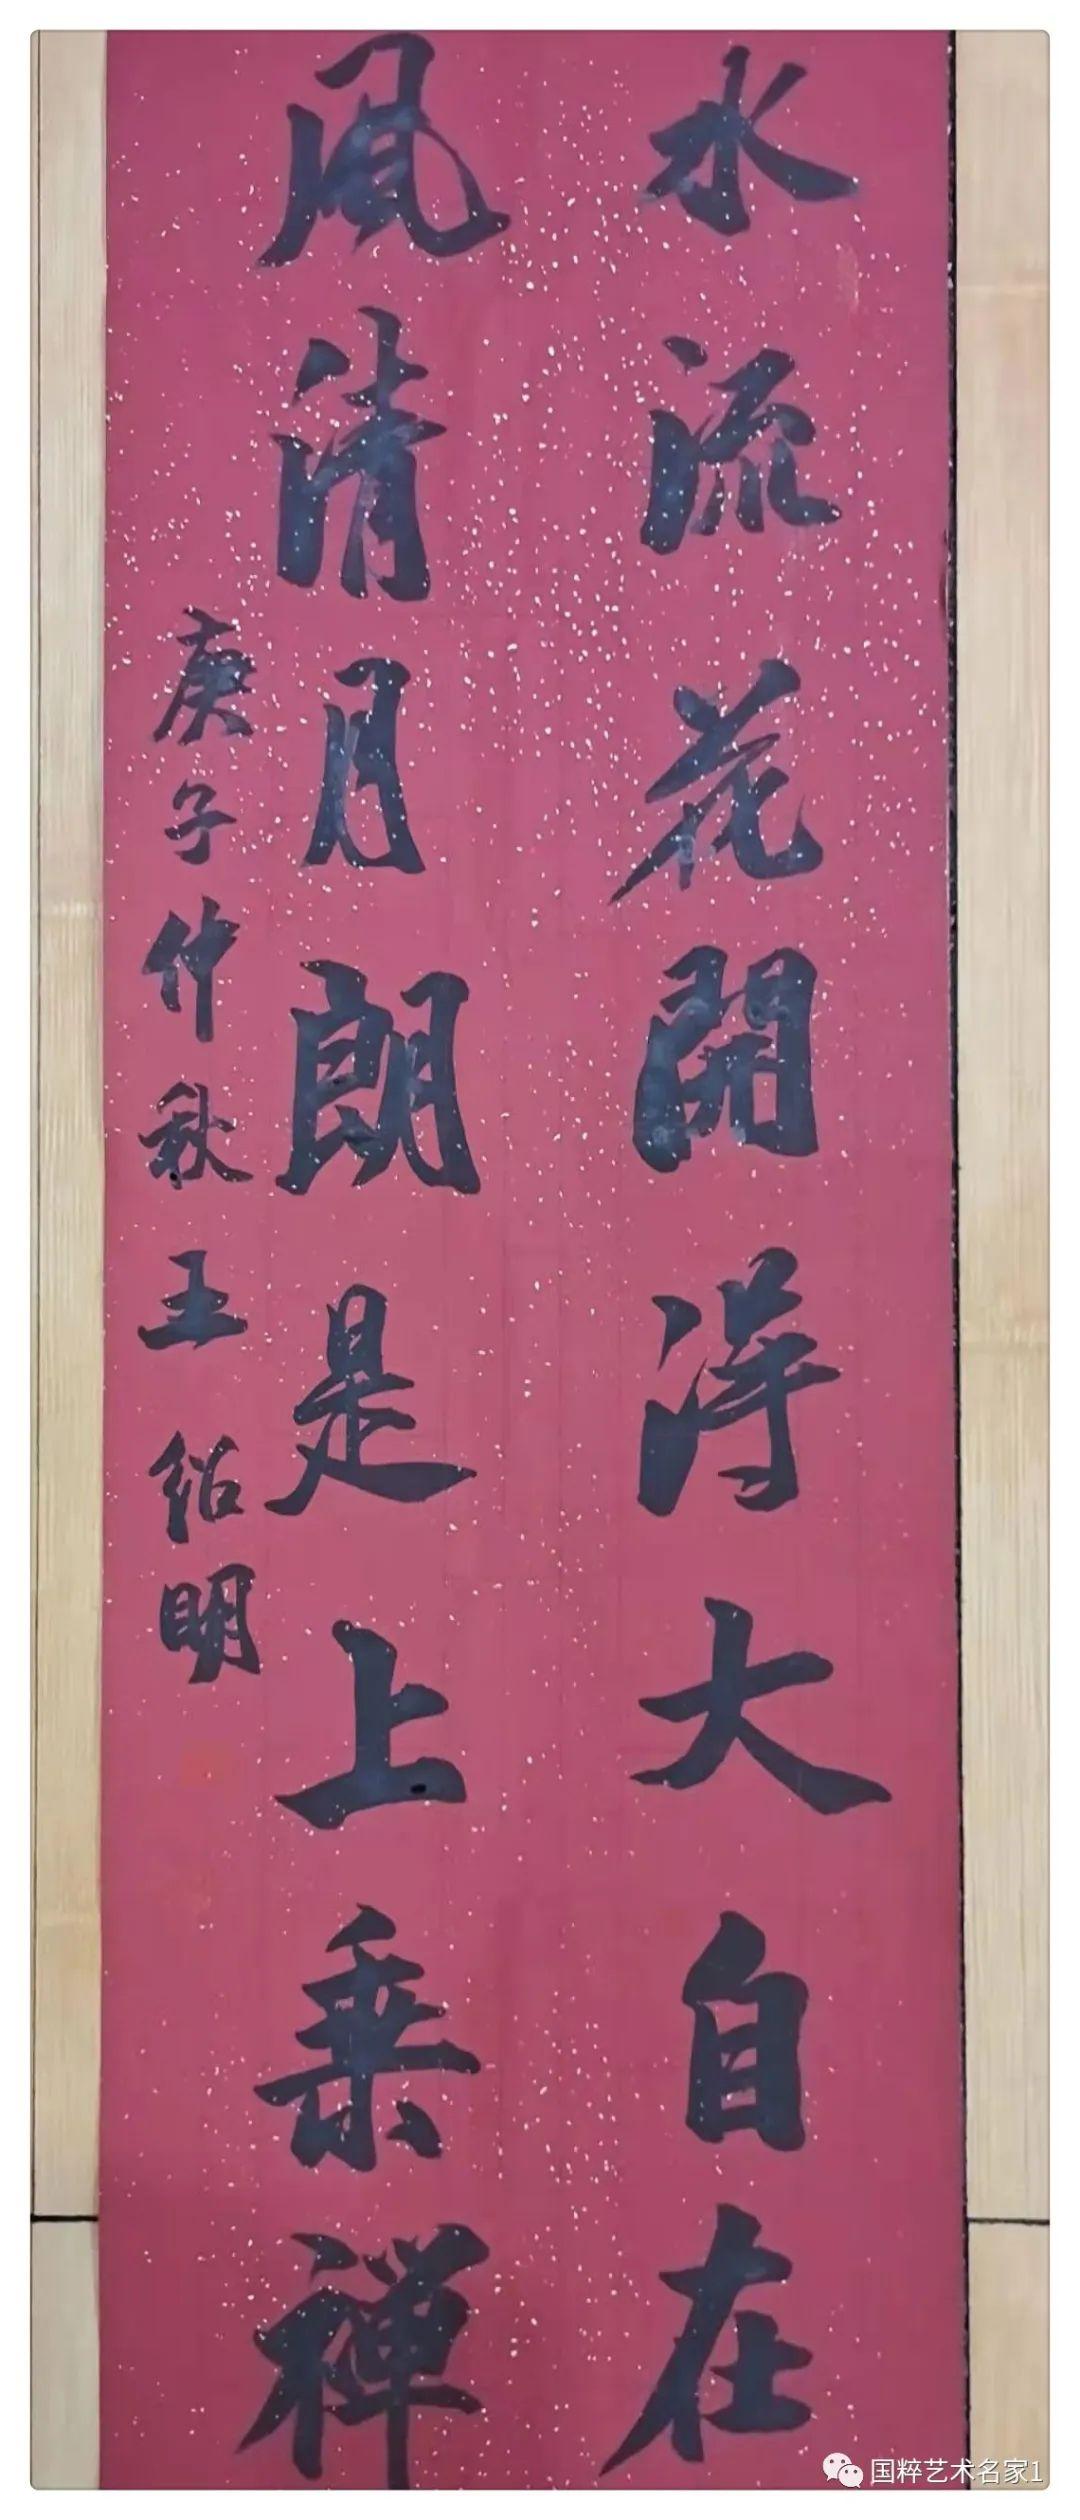 水流花開得大自在
風清月朗是上乘禅
庚子仲秋王绍明
国粹艺术名家1